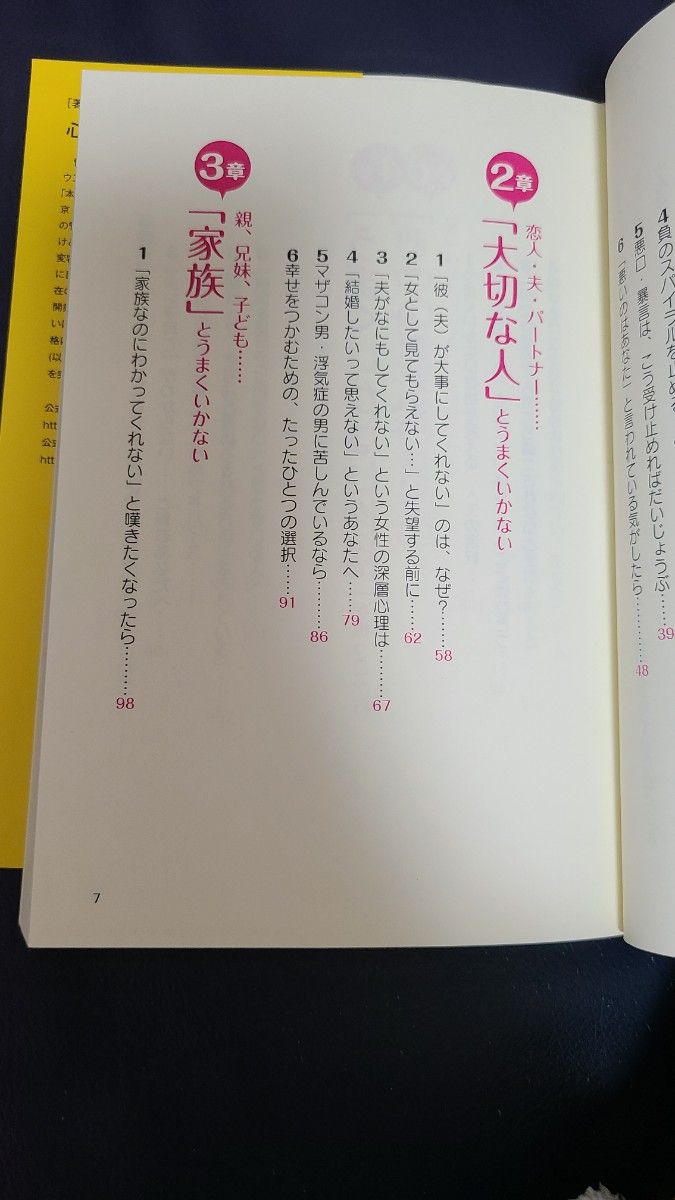 4 負のスパイラルを止める
5 悪口・暴言は、こう受け止めればだいじょうぶ……39
6 「悪いのはあなた」と言われている気がしたら……48
2章
恋人・夫・パートナー……
「大切な人」とうまくいかない
1 「彼（夫）が大事にしてくれない」のは、なぜ？……58
2 「女として見てもらえない…」と失望する前に……62
3 「夫がなにもしてくれない」という女性の深層心理は………67
4 「結婚したいって思えない」というあなたへ……79
5 マザコン男・浮気症の男に苦しんでいるなら………86
6 幸せをつかむための、たったひとつの選択……91
3章
親、兄妹、子ども……
「家族」とうまくいかない
1 「家族なのにわかってくれない」と嘆きたくなったら………98
7
[著
心
「本
京
の
変
に
在の
開
い
格
(以
を
公式
htt
公式
htt